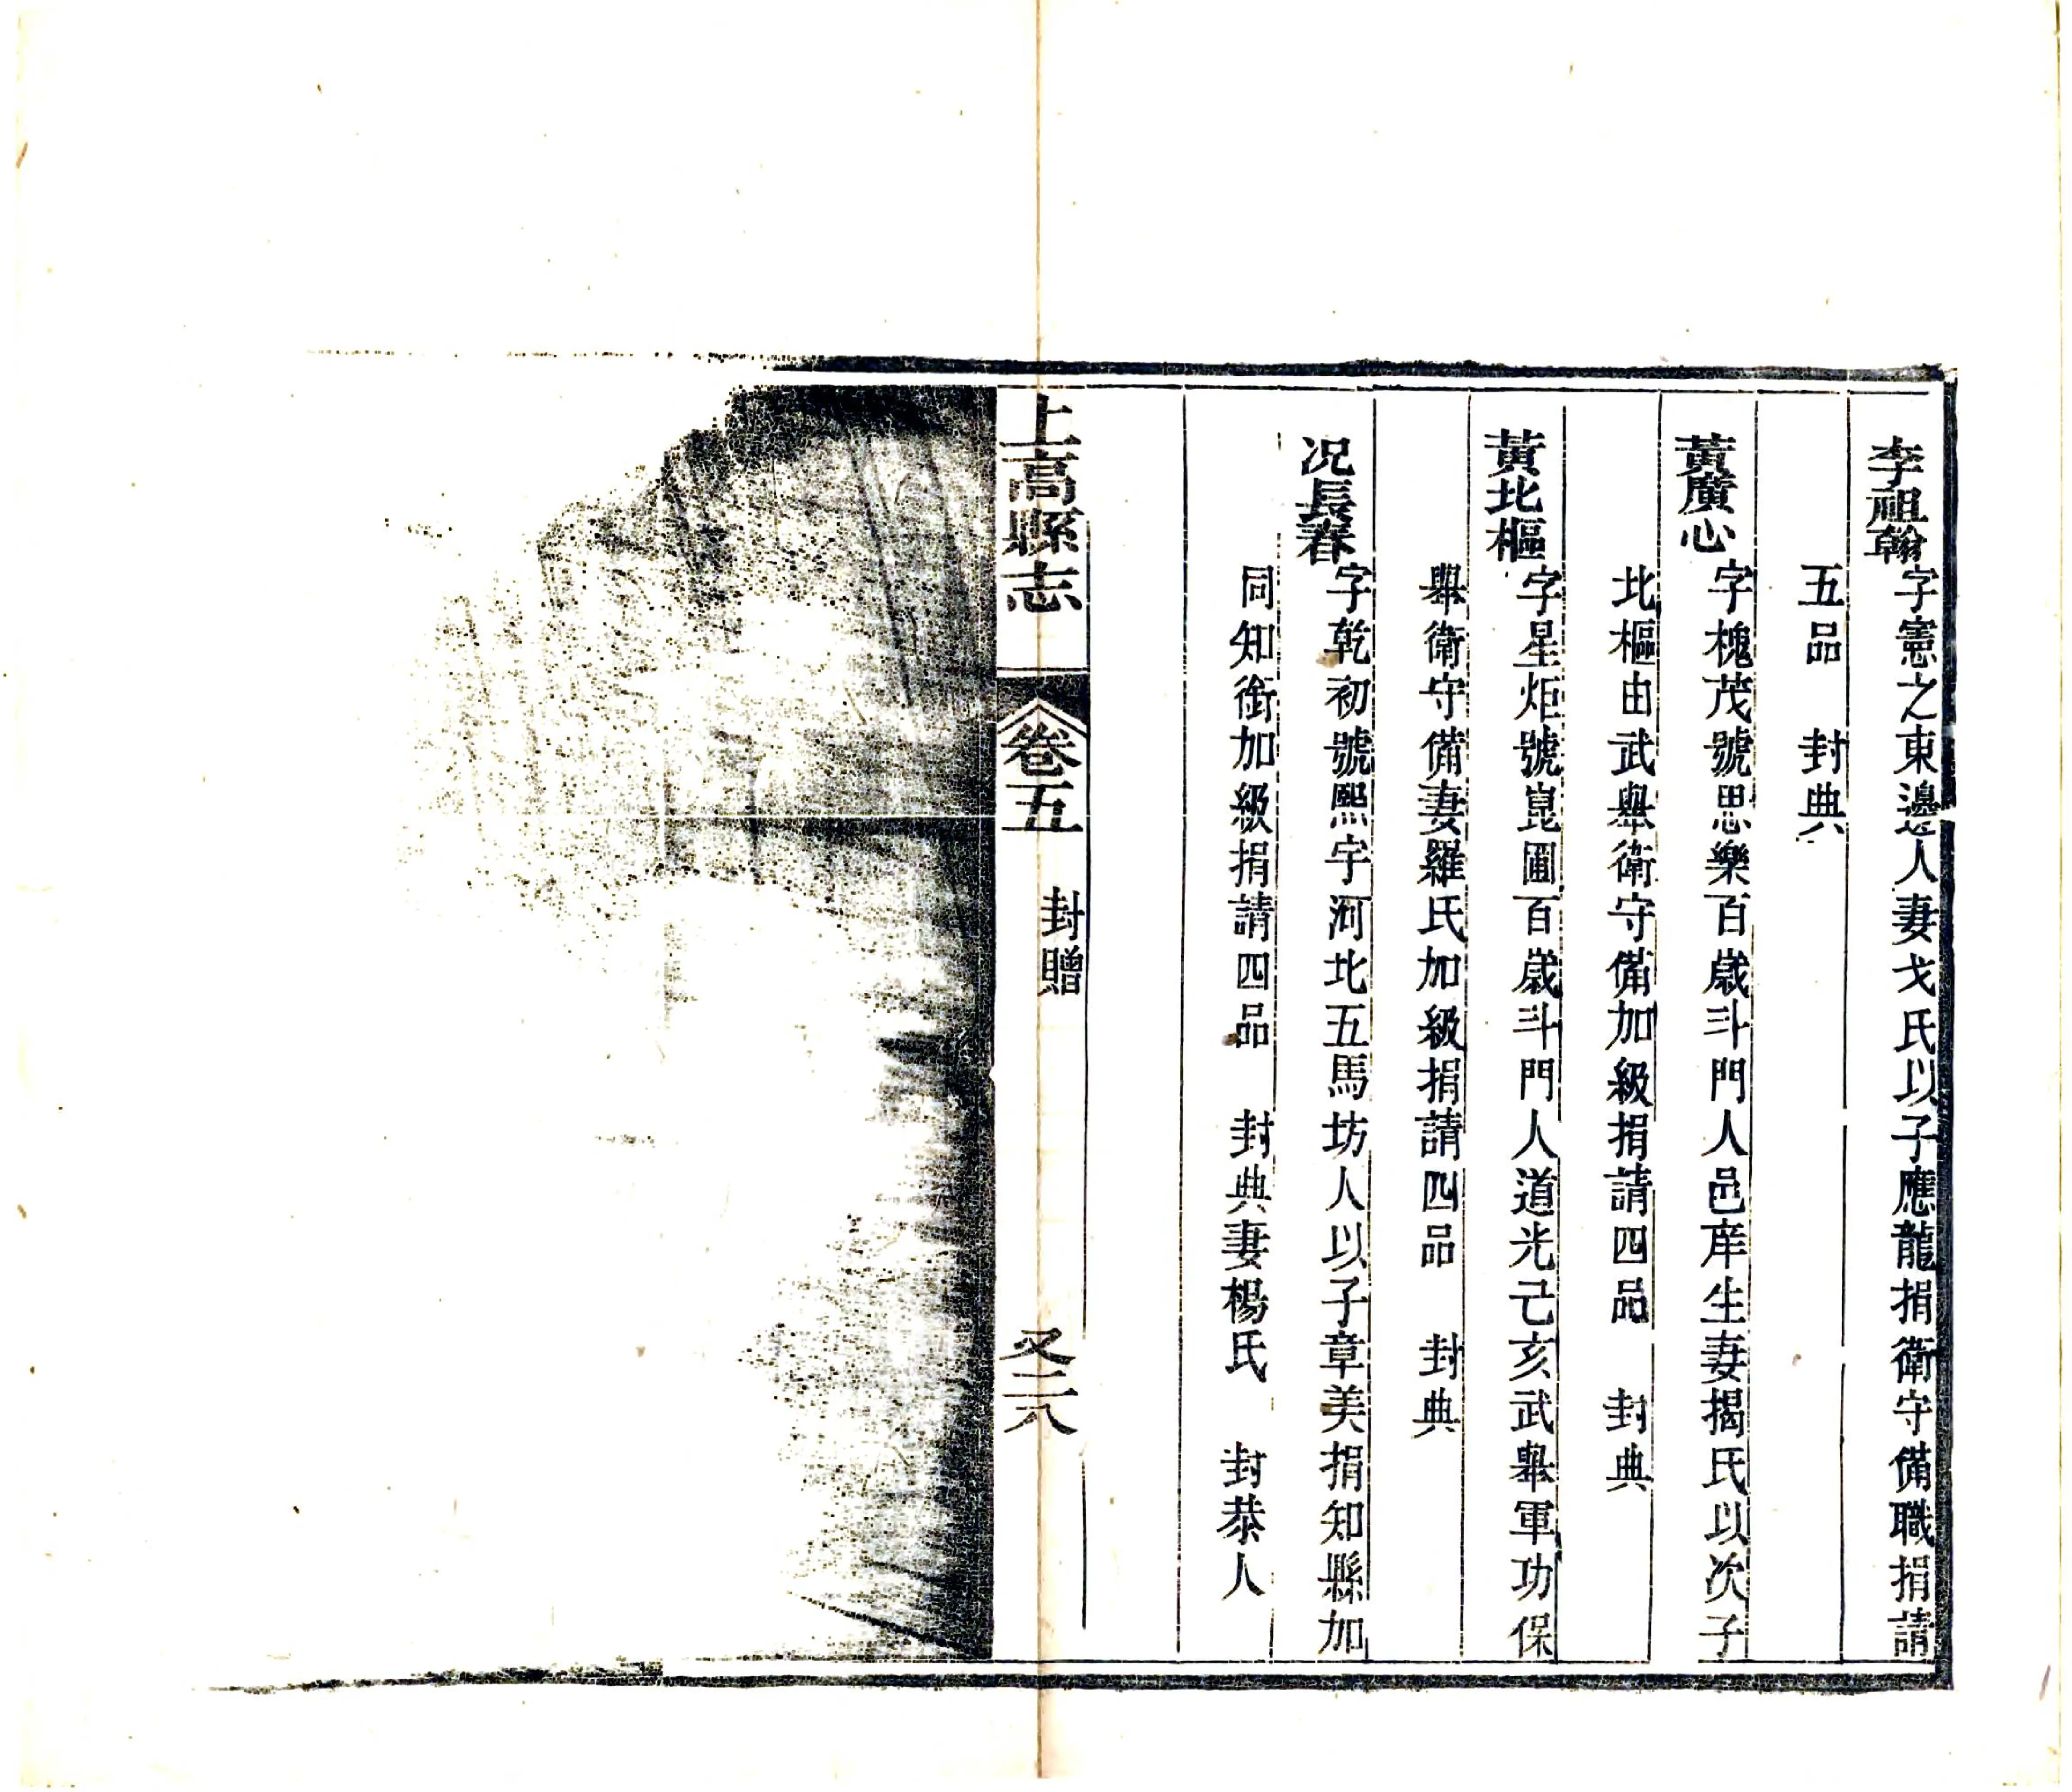 李祖翰字憲之東邊人妻戈氏以子應龍捐衛守備職捐請
五品　封典
黃廣心字槐茂號思樂百歲斗門人邑庠生妻揭氏以次子
北樞由武舉衛守備加級捐請四品　封典
黃北樞字星炬號崑圃百歲斗門人道光己亥武舉軍功保
舉衛守備妻羅氏加級捐請四品　封典
况長春字乾初號熙宇河北五馬坊人以子章美捐知縣加
同知銜加級捐請四品　封典妻楊氏　封恭人
上高縣志　卷五　封贈　又二八